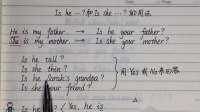 Is he …? 和 Is she …? 的用法
He is my father. → Is he your father?
She is my mother. → Is she your mother?
Is he tall?
Is she thin?
Is he Sarah's grandpa?
Is she your friend?
用 Yes 或 No 来回答
Is he ? Yes, he is.